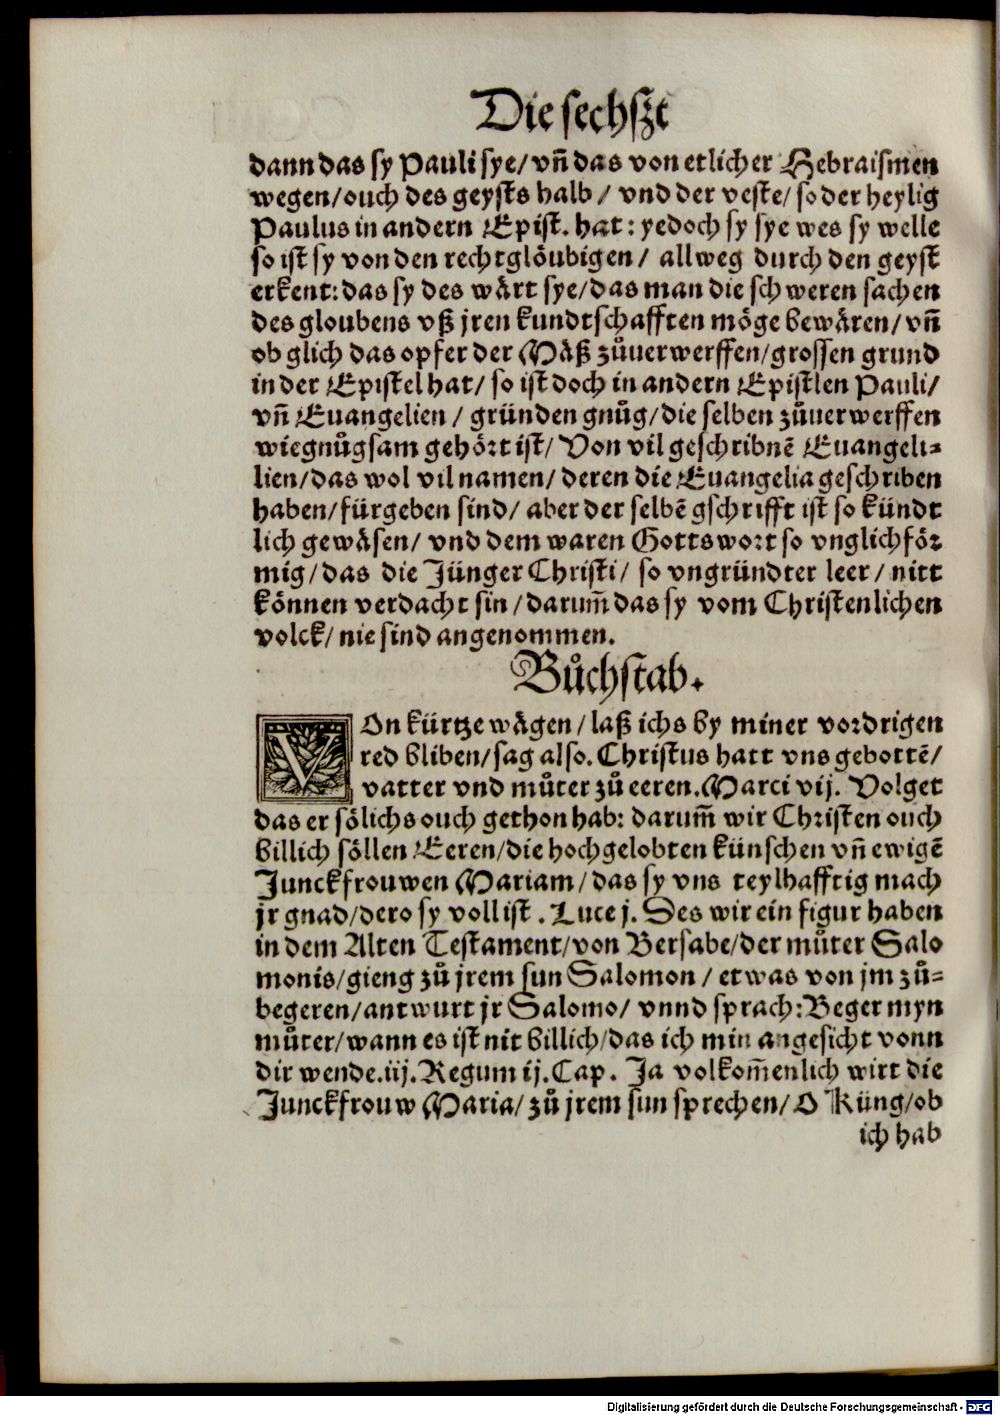 Die sechszt
dann das sy Pauli sye/ vñ das von etlicher Hebraismen
wegen/ ouch des geysts halb / vnd der veste/ so der heylig
Paulus in andern Epist. hat: yedoch sy sye wes sy welle
so ist sy von den rechtglöubigen/ allweg durch den geyst
erkent: das sy des wärt sye/ das man die schweren sachen
des gloubens vß jren kundtschafften möge bewären/ vñ
ob glich das opfer der Mäß zůuerwerffen/ grossen grund
in der Epistel hat/ so ist doch in andern Epistlen Pauli/
vñ Euangelien / gründen gnůg/ die selben zůuerwerffen
wie gnůgsam gehört ist/ Von vil geschribnē Euangeli-
lien/ das wol vil namen/ deren die Euangelia geschriben
haben/ fürgeben sind/ aber der selbē gschrifft ist so kündt
lich gewäsen/ vnd dem waren Gotts wort so vnglichför
mig/ das die Jünger Christi/ so vngründter leer/ nitt
können verdacht sin/ darum̃ das sy vom Christenlichen
volck/ nie sind angenommen.
Bůchstab.
VOn kürtze wägen/ laß ichs by miner vordrigen
red bliben/ sag also. Christus hatt vns gebottē/
vatter vnd můter zů eeren. Marci vij. Volget
das er sölichs ouch gethon hab: darum̃ wir Christen ouch
billich söllen Eeren/ die hochgelobten künschen vñ ewigē
Junckfrouwen Mariam/ das sy vns teylhafftig mach
jr gnad/ dero sy voll ist. Luce j. Des wir ein figur haben
in dem Alten Testament/ von Bersabe/ der můter Salo
monis/ gieng zů jrem sun Salomon / etwas von jm zů-
begeren/ antwurt jr Salomo/ vnnd sprach: Beger myn
můter/ wann es ist nit billich/ das ich min angesicht vonn
dir wende. iij. Regum ij. Cap. Ja volkom̃enlich wirt die
Junckfrouw Maria/ zů jrem sun sprechen/ O Küng/ ob
ich hab
Digitalisierung gefördert durch die Deutsche Forschungsgemeinschaft - DFG